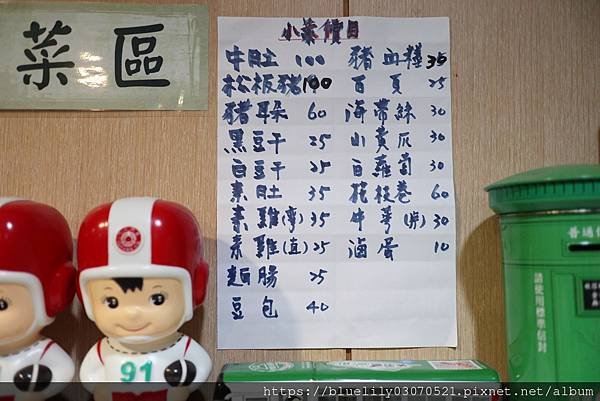 菜區
小菜價目
牛肚 100
松板豬 100
豬耳朵 60
黑豆干 25
白豆干 25
素肚 35
素雞(彎) 35
素雞(直) 25
麵腸 25
豆包 40
豬血糕 35
百頁 25
海帶絲 30
小黃瓜 30
白蘿蔔 30
花枝卷 60
牛蒡(片) 30
滷蛋 10
91
普通
請使用標準信封
https://bluelily03070521.pixnet.net/album